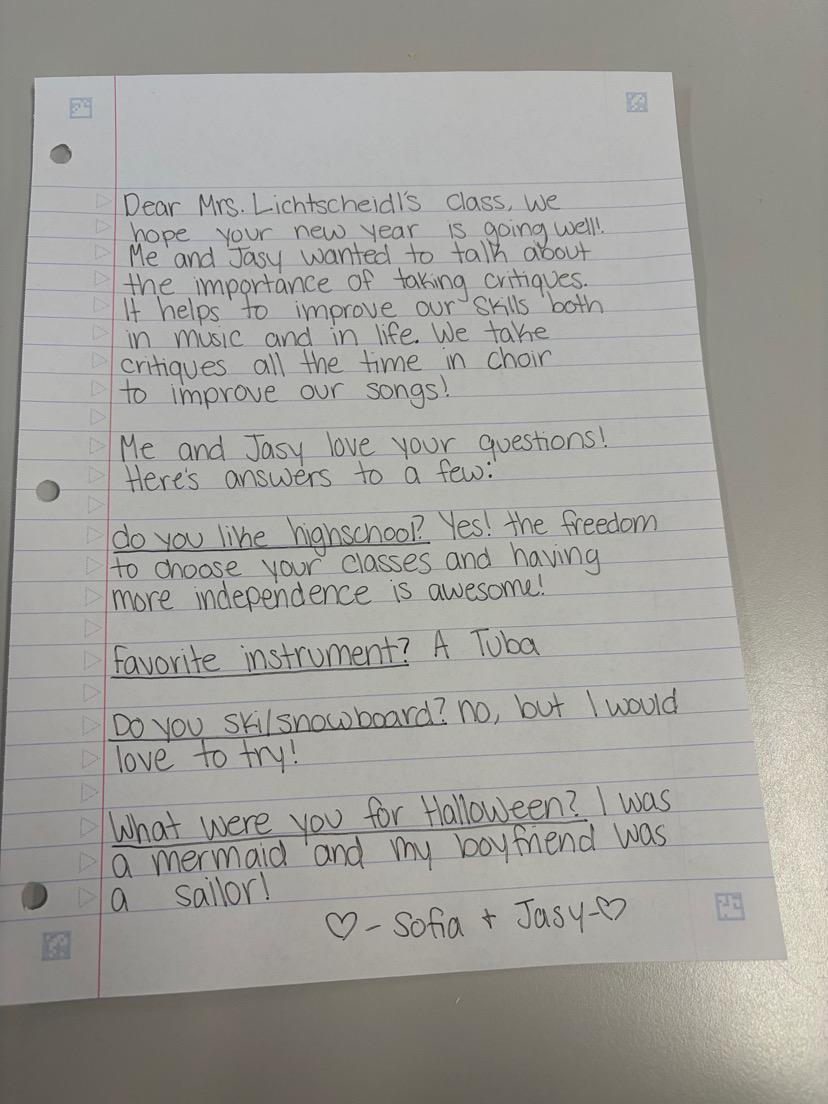 Dear Mrs. Lichtscheidl's class, we
hope your new year is going well!
Me and Jasy wanted to talk about
the importance of taking critiques.
It helps to improve our skills both
in music and in life. We take
critiques all the time in choir
to improve our songs!
Me and Jasy love your questions!
Here's answers to a few:
do you like highschool? Yes! the freedom
to choose your classes and having
more independence is awesome!
favorite instrument? A Tuba
Do you ski/snowboard? no, but I would
love to try!
What were you for Halloween? I was
a mermaid and my boyfriend was
a sailor!
♡- Sofia + Jasy-♡